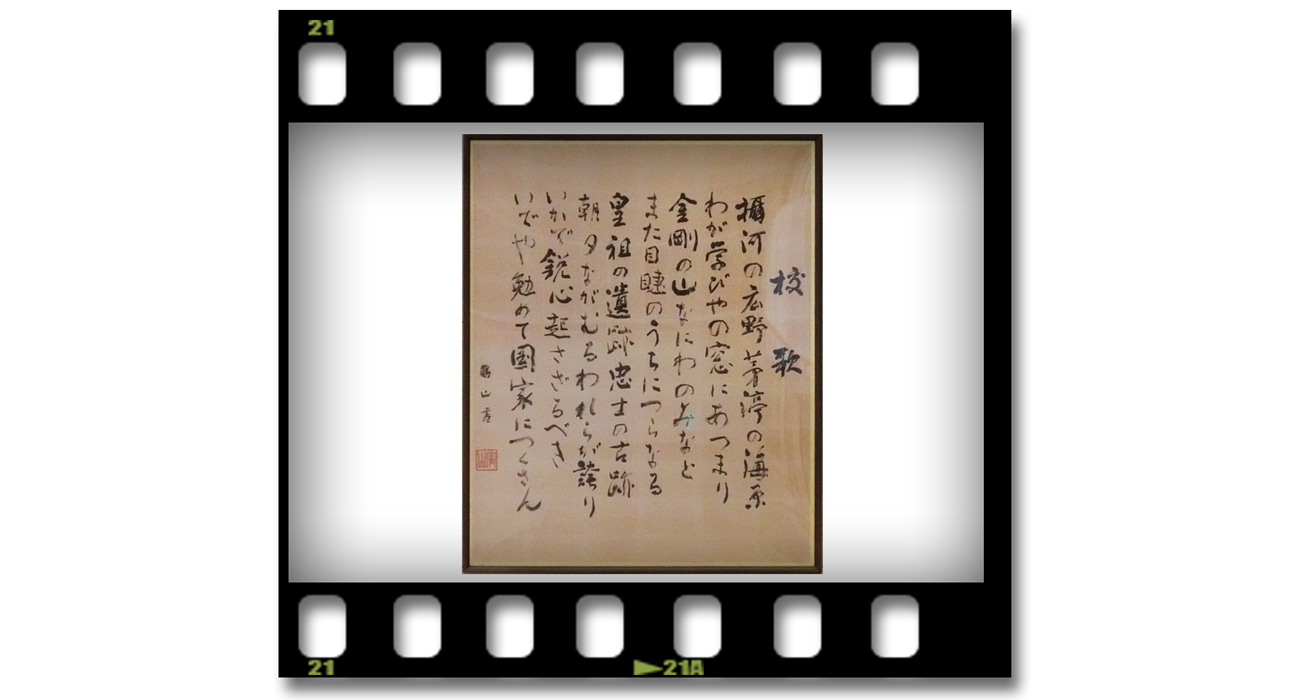 21
校歌
攝河の広野茅渟の海原
わが学びやの窓にあつまり
金剛の山なにわのみなと
また目睫のうちにつらなる
皇祖の遺跡忠士の古跡
朝夕ながむるわれらが誇り
いかで鋭心起さざるべき
いでや勉めて國家につくさん
21
21A